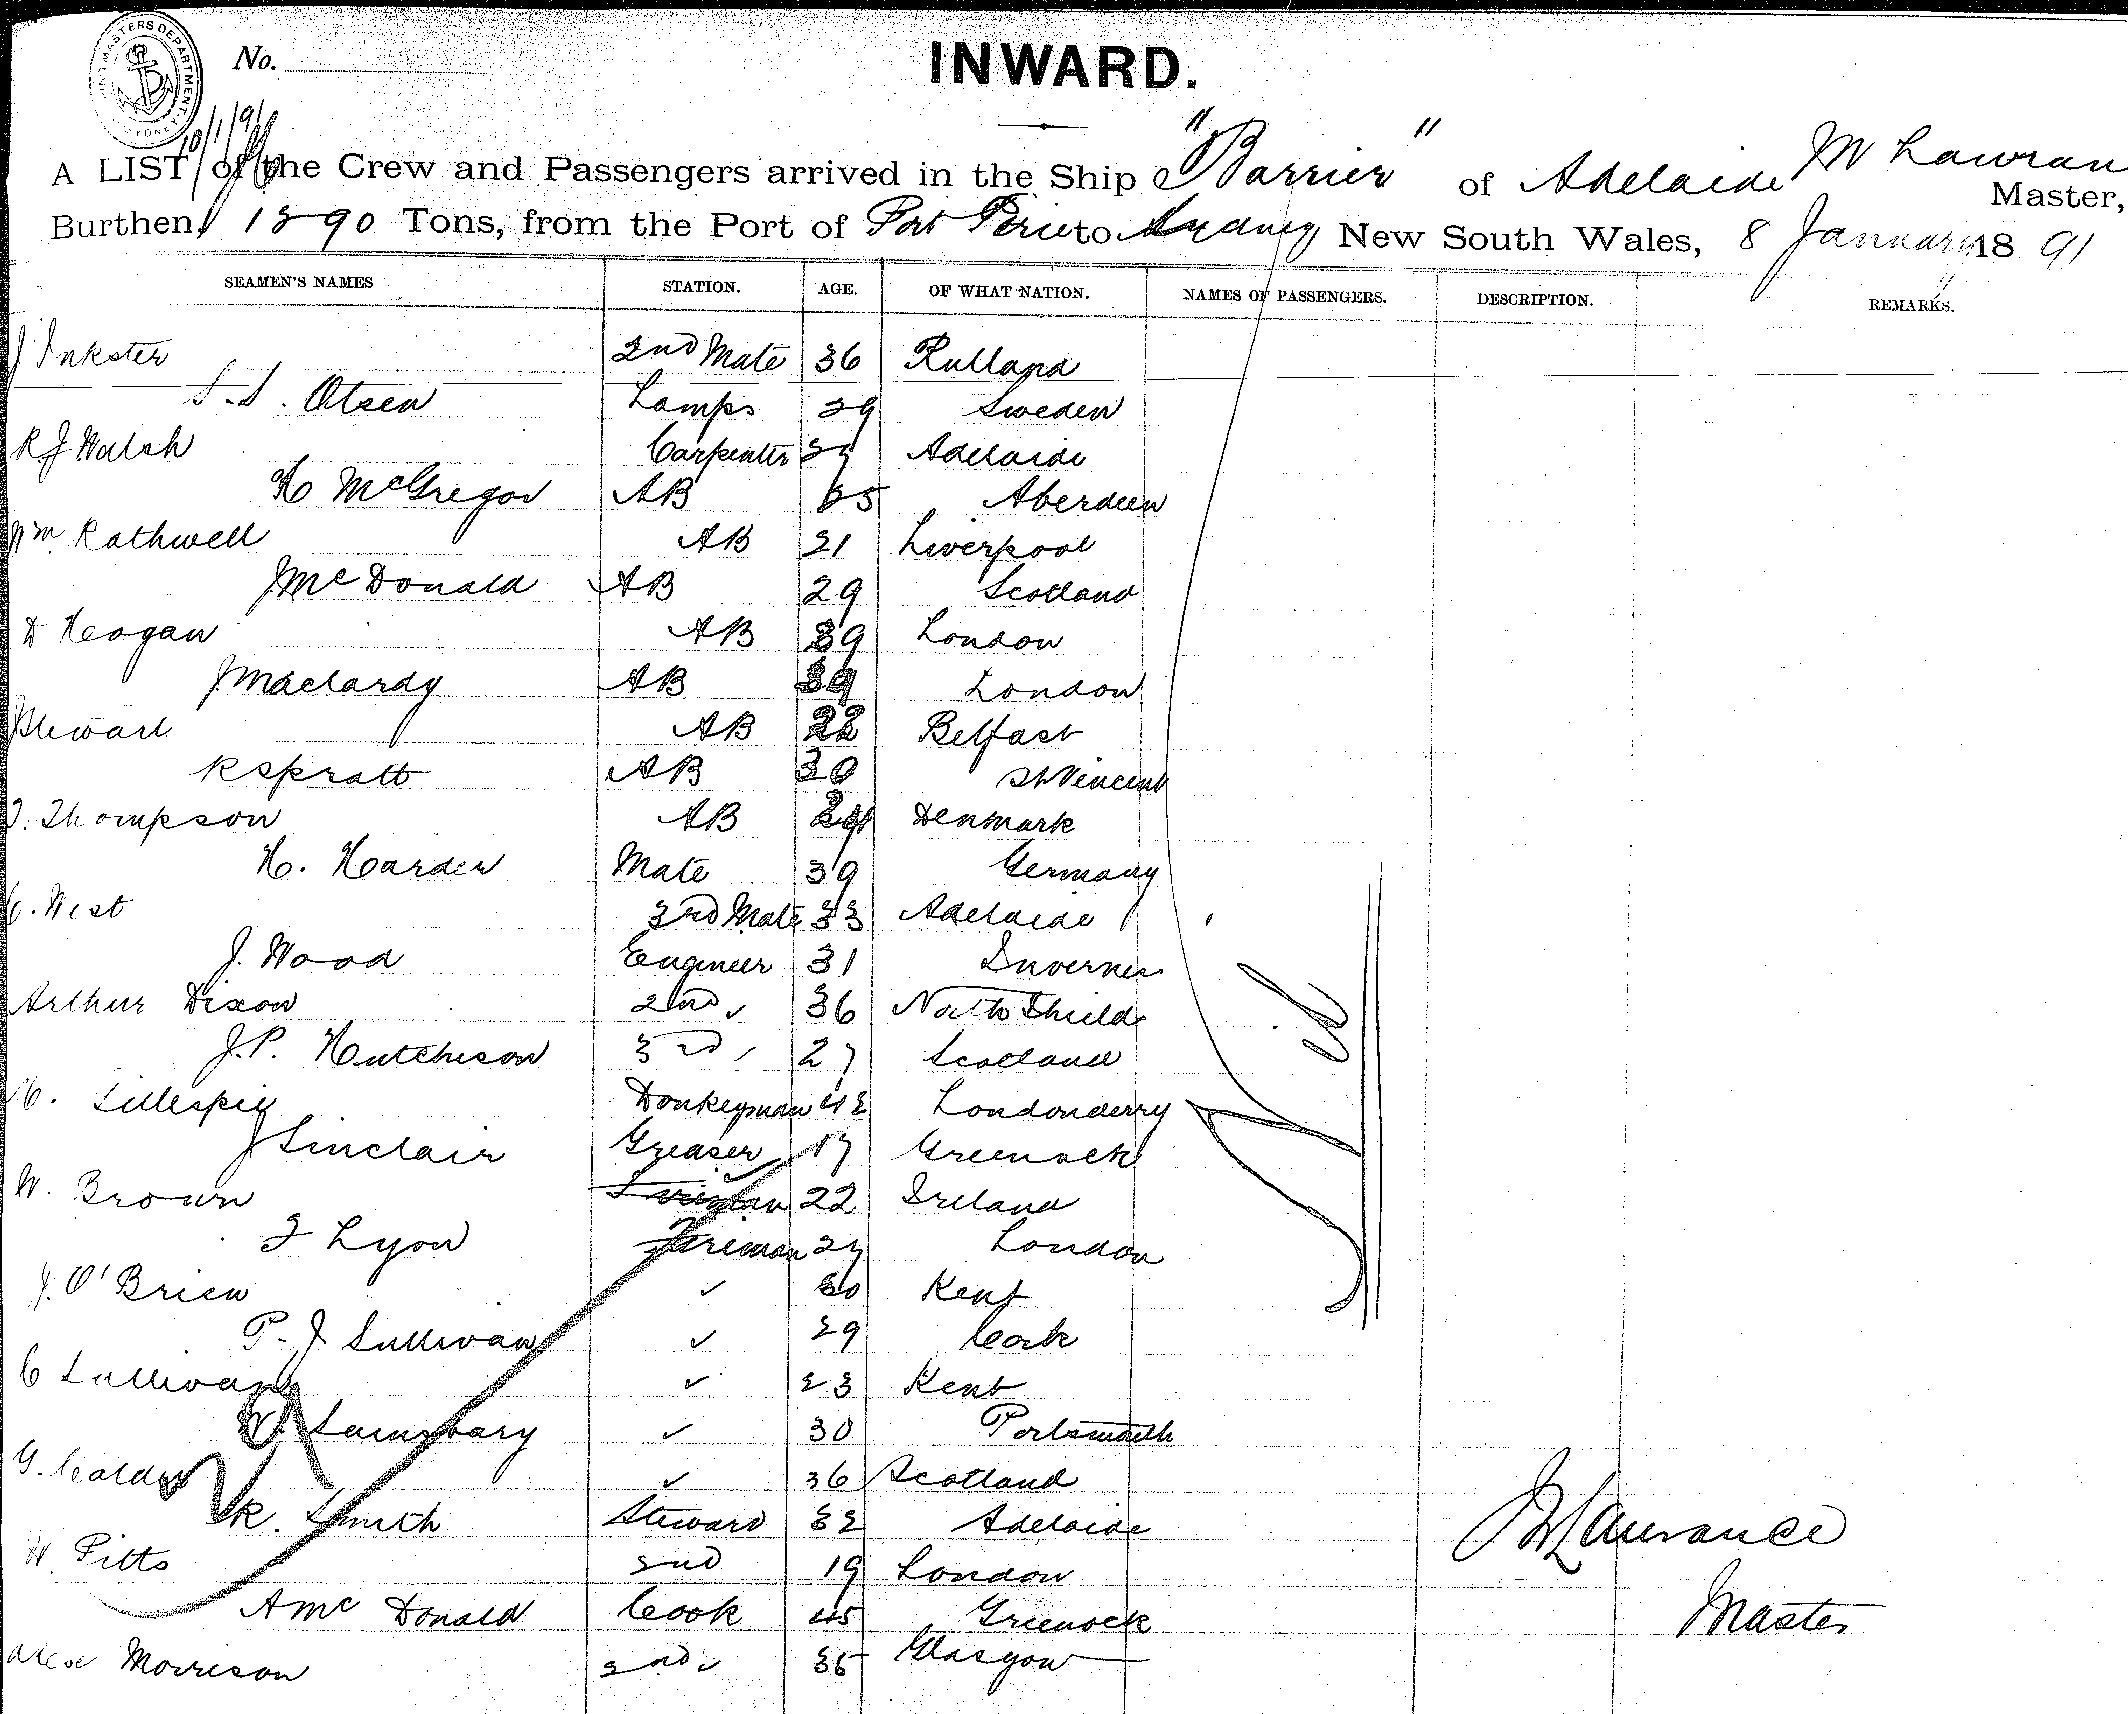 No.
INWARD.
A LIST of the Crew and Passengers arrived in the Ship "Barrier" of Adelaide M Lawran
Master,
Burthen 1890 Tons, from the Port of Port Pirie to Sydney New South Wales, 8 January 1891
SEAMEN'S NAMES STATION. AGE. OF WHAT NATION. NAMES OF PASSENGERS. DESCRIPTION. REMARKS.
J Inkster 2nd Mate 36
S. S. Olsen Lamps 29 Sweden
R J Walsh Carpenter Adelaide
H McGregor AB Aberdeen
Wm Rathwell AB 21 Liverpool
J McDonald AB 29 Scotland
D Keogan AB 39 London
J Maclardy AB London
Stewart AB 22 Belfast
R Spratt AB 30 St Vincent
J. Thompson AB Denmark
H. Harder Mate 39 Germany
C. West 3rd Mate 33 Adelaide
J. Wood Engineer 31 Inverness
Arthur Dixon 2nd 36 North Shields
J. P. Hutcheson 3rd 27 Scotland
Gillespie Donkeyman 42 Londonderry
J Sinclair Greaser Greenock
W. Brown Fireman 22 Ireland
Lyon Fireman 27 London
J. O'Brien ✓ 30 Kent
P. J Sullivan ✓ 29 Cork
C Sullivan ✓ 23 Kent
W. Sainsbury ✓ 30 Portsmouth
G. Calder ✓ 36 Scotland
R. Smith Steward 32 Adelaide
W. Pitts 2nd 19 London
A McDonald Cook 45 Greenock
Alex Morrison 2nd 35 Glasgow
M Lawrance
Master